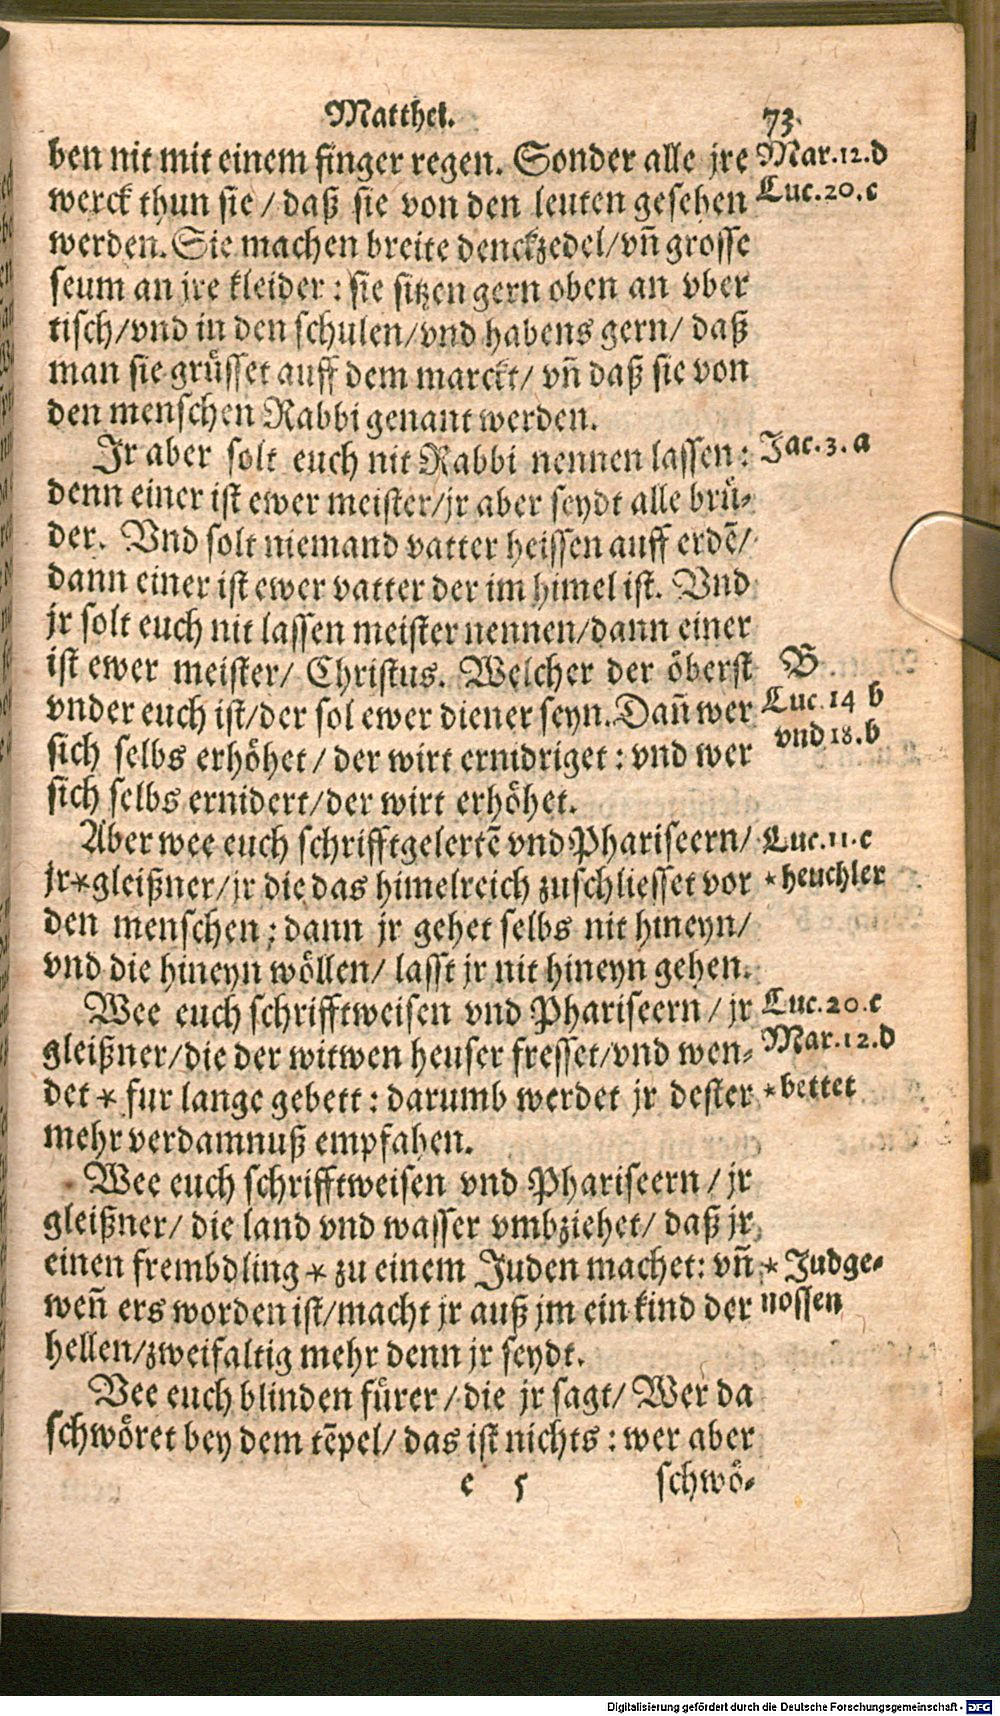 Matthei. 73
ben nit mit einem finger regen. Sonder alle jre Mar.12.d
werck thun sie / daß sie von den leuten gesehen Luc.20.c
werden. Sie machen breite denckzedel/vñ grosse
seum an jre kleider : sie sitzen gern oben an vber
tisch/vnd in den schulen/vnd habens gern/ daß
man sie grüsset auff dem marckt/ vñ daß sie von
den menschen Rabbi genant werden.
Jr aber solt euch nit Rabbi nennen lassen: Jac.3.a
denn einer ist ewer meister/jr aber seydt alle brü-
der. Vnd solt niemand vatter heissen auff erdẽ/
dann einer ist ewer vatter der im himel ist. Vnd
jr solt euch nit lassen meister nennen/dann einer
ist ewer meister/ Christus. Welcher der öberst B
vnder euch ist/der sol ewer diener seyn. Dañ wer Luc.14 b
sich selbs erhöhet / der wirt ernidriget : vnd wer vnd 18.b
sich selbs ernidert/der wirt erhöhet.
Aber wee euch schrifftgelertẽ vnd Phariseern/ Luc.11.c
jr*gleißner/jr die das himelreich zuschliesset vor *heuchler
den menschen ; dann jr gehet selbs nit hineyn/
vnd die hineyn wöllen/ lasst jr nit hineyn gehen.
Wee euch schrifftweisen vnd Phariseern / jr Luc.20.c
gleißner/die der witwen heuser fresset/vnd wen- Mar.12.d
det * fur lange gebett : darumb werdet jr dester *bettet
mehr verdamnuß empfahen.
Wee euch schrifftweisen vnd Phariseern / jr
gleißner/ die land vnd wasser vmbziehet/ daß jr
einen frembdling * zu einem Juden machet: vñ * Judge-
weñ ers worden ist/macht jr auß jm ein kind der nossen
hellen/zweifaltig mehr denn jr seydt.
Vee euch blinden fürer / die jr sagt/ Wer da
schwöret bey dem tẽpel/ das ist nichts : wer aber
e 5 schwö-
Digitalisierung gefördert durch die Deutsche Forschungsgemeinschaft - DFG